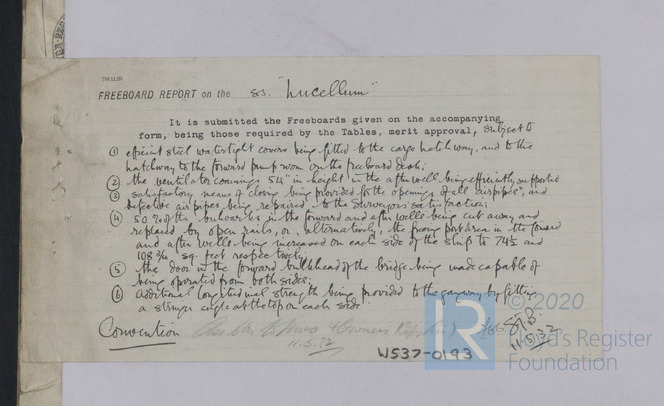 FREEBOARD REPORT on the ss. "Lucellum"
It is submitted the Freeboards given on the accompanying
form, being those required by the Tables, merit approval, subject to
① efficient steel watertight covers being fitted to the cargo hatchway, and to the
hatchway to the forward pump room on the freeboard deck;
② the ventilator coamings 54" in height in the after well being efficiently supported
③ satisfactory means of closing being provided for the openings of all "airpipes", and
defective air pipes being repaired to the Surveyors' satisfaction;
④ 50% of the bulwarks in the forward and after wells being cut away and
replaced by open rails, or, alternatively, the freeing port area in the forward
and after wells being increased on each side of the ship to 74½ and
108¾ sq. feet respectively;
⑤ the door in the forward bulkhead of the bridge being made capable of
being operated from both sides;
⑥ additional longitudinal strength being provided to the gangway by fitting
a stringer angle at the top on each side.
Convention
11.5.32
11.5.32
W537-0193
LR
© 2020
Lloyd's Register
Foundation